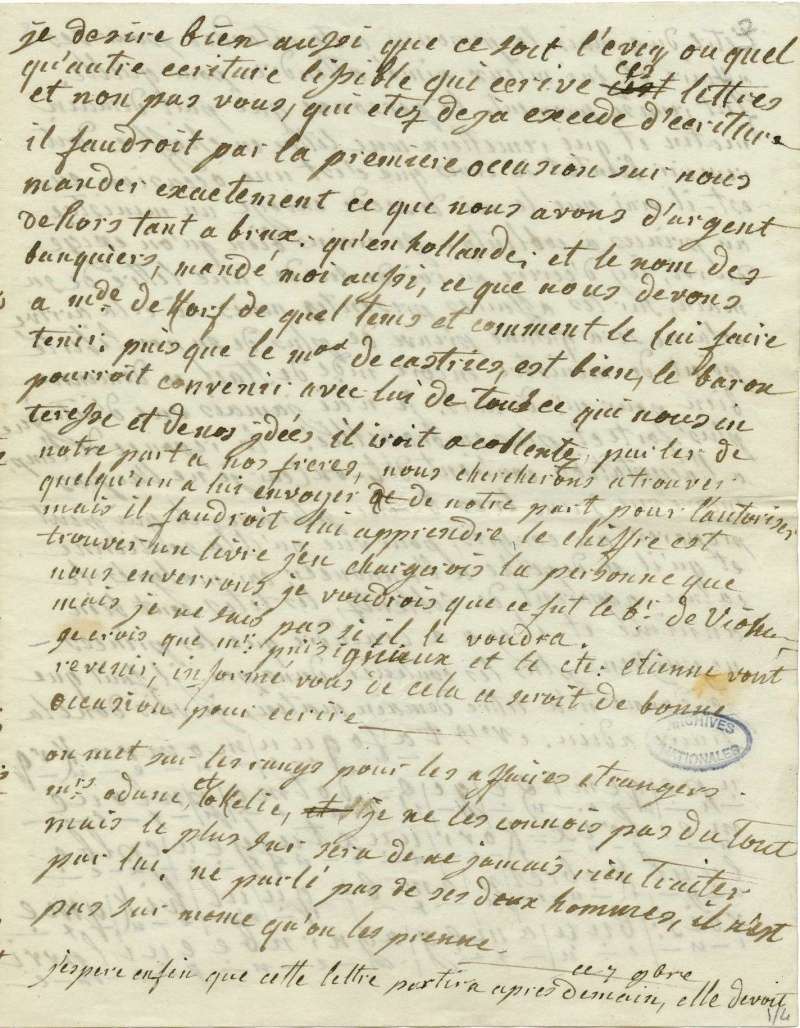 2
je desire bien aussi que ce soit l'eveq ou quel
qu'autre ecriture lisible qui ecrive ces lettres
et non pas vous, qui etez deja excede d'ecriture
il faudroit par la premiere occasion sur nous
mander exactement ce que nous avons d'argent
dehors tant a brux. qu'en hollande, et le nom des
banquiers, mandé moi aussi, ce que nous devons
a mde de Korf de quel tems et comment le lui faire
tenir, puis que le mal de castries, est bien, le baron
pourroit convenir avec lui de tous ce qui nous in
teresse et de nos idées il iroit a coblente, parler de
notre part a nos freres, nous chercherons a trouver
quelqu'un a lui envoyer de notre part pour l'autoriser
mais il faudroit lui apprendre le chiffre est
trouver un livre j'en chargerois la personne que
nous enverrons je voudrois que ce fut le br. de Viome
mais je ne sais pas si il le voudra.
je crois que mr. puis et le cte: etienne vont
revenir, informé vous de cela ce seroit de bonne
occasion pour ecrire
ARCHIVES
NATIONALES
on met sur les rangs pour les affaires etrangers
mrs odune, et okelie, je ne les connois pas du tout
mais le plus sur sera de ne jamais rien traiter
par lui. ne parlé pas de ses deux hommes, il n'est
pas sur mome qu'on les prenne.
ce 7 9bre
j'espere enfin que cette lettre partira apres demain, elle devoit